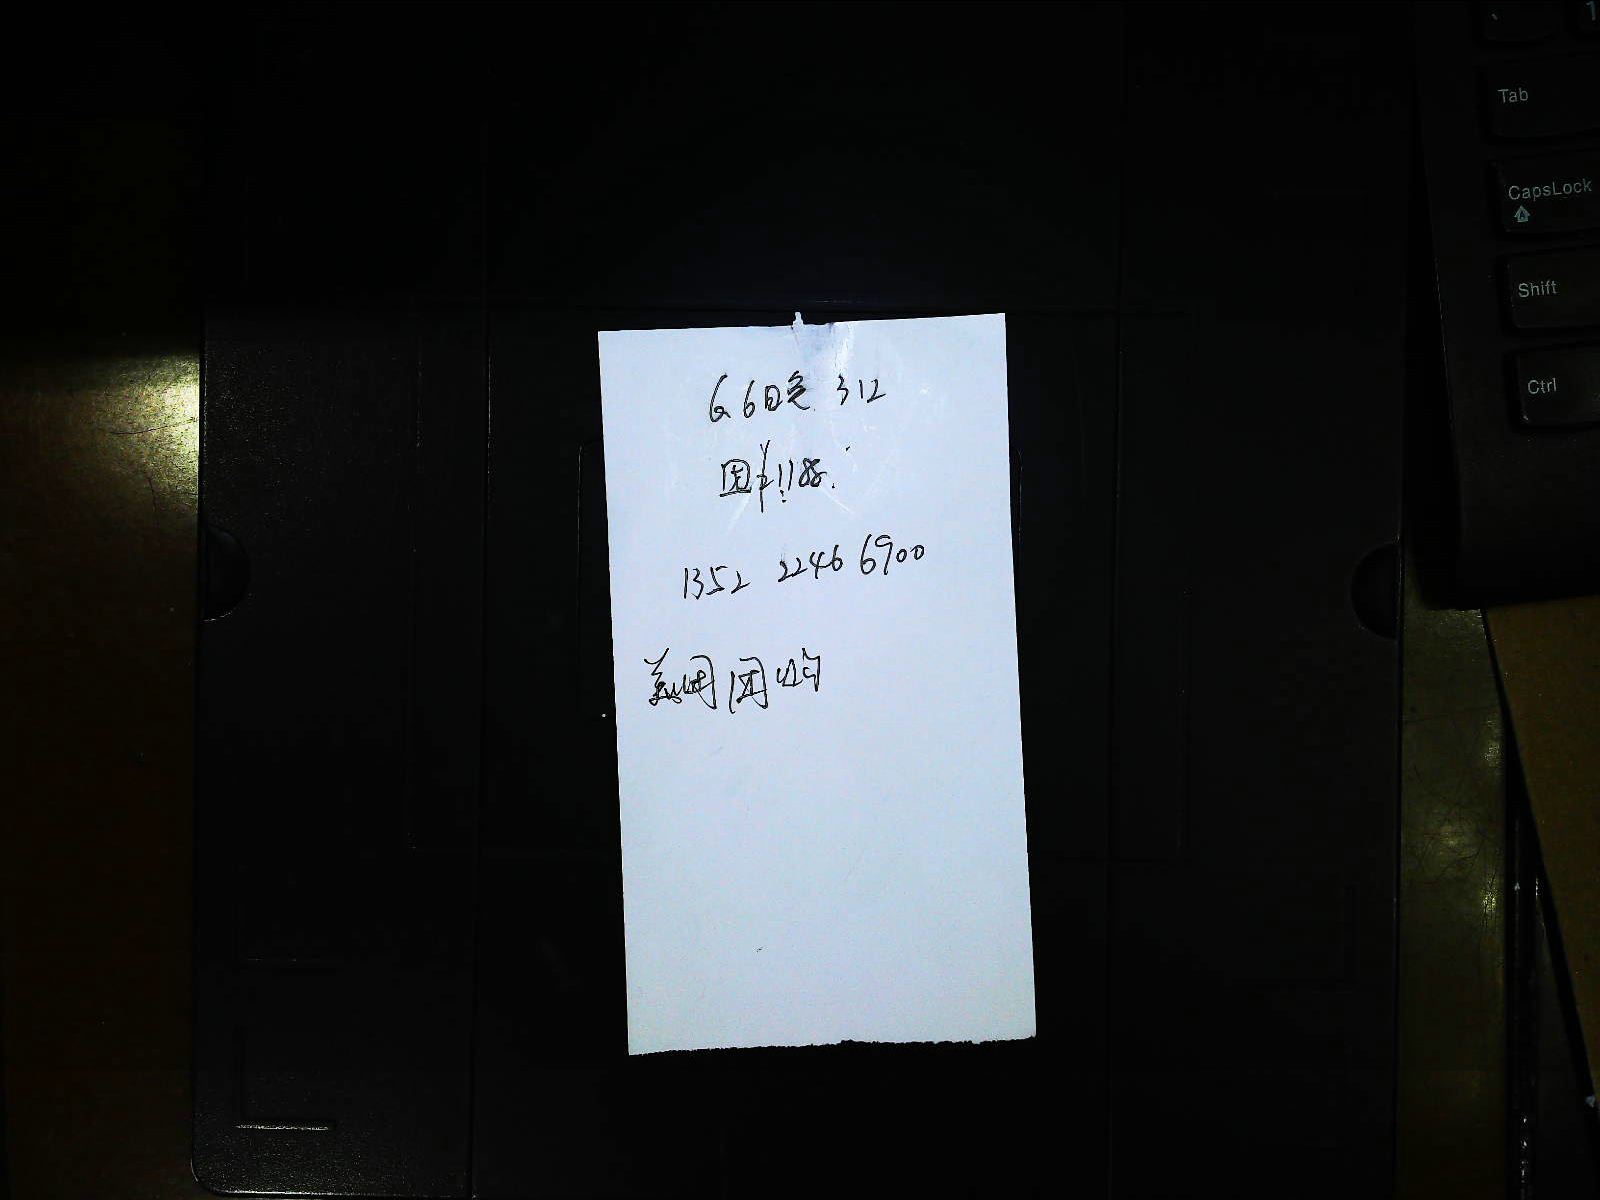 6.6日晚 312
团¥1188.
1352 2246 6900
美团团购
Tab
CapsLock
Shift
Ctrl